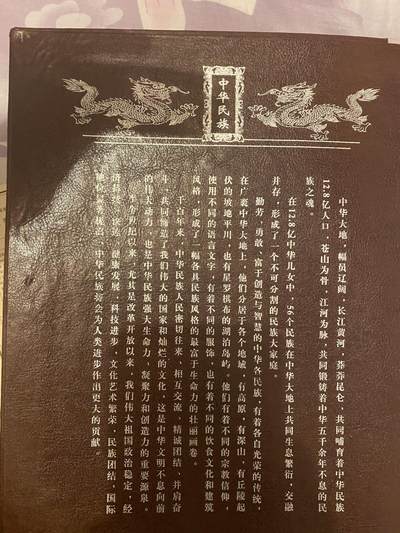 中华民族
中华大地，幅员辽阔，长江黄河，莽莽昆仑，共同哺育着中华民族
12.8亿人口，苍山为骨，江河为脉，共同锻铸着中华五千余年不息的民
族之魂。
在12.8亿中华儿女中，56个民族在中华大地上共同生息繁衍，交融
并存，形成了一个不可分割的民族大家庭。
勤劳，勇敢，富于创造与智慧的中华各民族，有着各自光荣的传统，
在广袤中华大地上，他们分居于各个地域，有高原，有深山，有丘陵起
伏的坡地平川，也有星罗棋布的湖泊岛屿。他们有着不同的宗教信仰，
使用不同的语言文字，有着不同的服饰，也有着不同的饮食文化和建筑
风格，形成了一幅各具民族风格的最富于生命力的壮丽画卷。
千百年来，中华民族人民密切往来，相互交流，精诚团结，并肩奋
斗，共同缔造了我们伟大的国家和灿烂的文化，这是中华文明不息向前
的伟大动力，也是中华民族强大生命力，凝聚力和创造力的重要源泉。
半个世纪以来，尤其是改革开放以来，我们伟大祖国政治稳定，经
济持续，快速，健康发展，科技进步，文化艺术繁荣，民族团结，国际
地位显著提高。中华民族将会为人类进步作出更大的贡献。